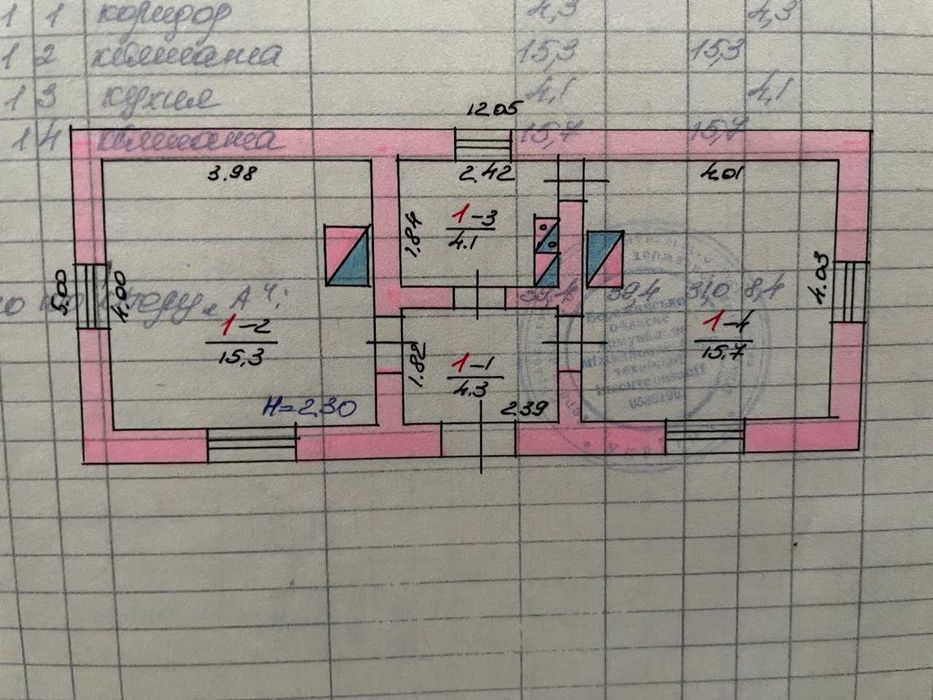 1 1 коридор 4,3 4,3
1 2 кімната 15,3 15,3
1 3 кухня 4,1 4,1
1 4 кімната 15,7 15,7
12.05
3.98
2.42
4.01
1.84
1-3
4.1
5.00
4.00
4.03
по поду „А“: 39,4 39,4 31,0 8,4
1-2
15,3
1-4
15.7
1.82
1-1
4.3
H=2.30
2.39